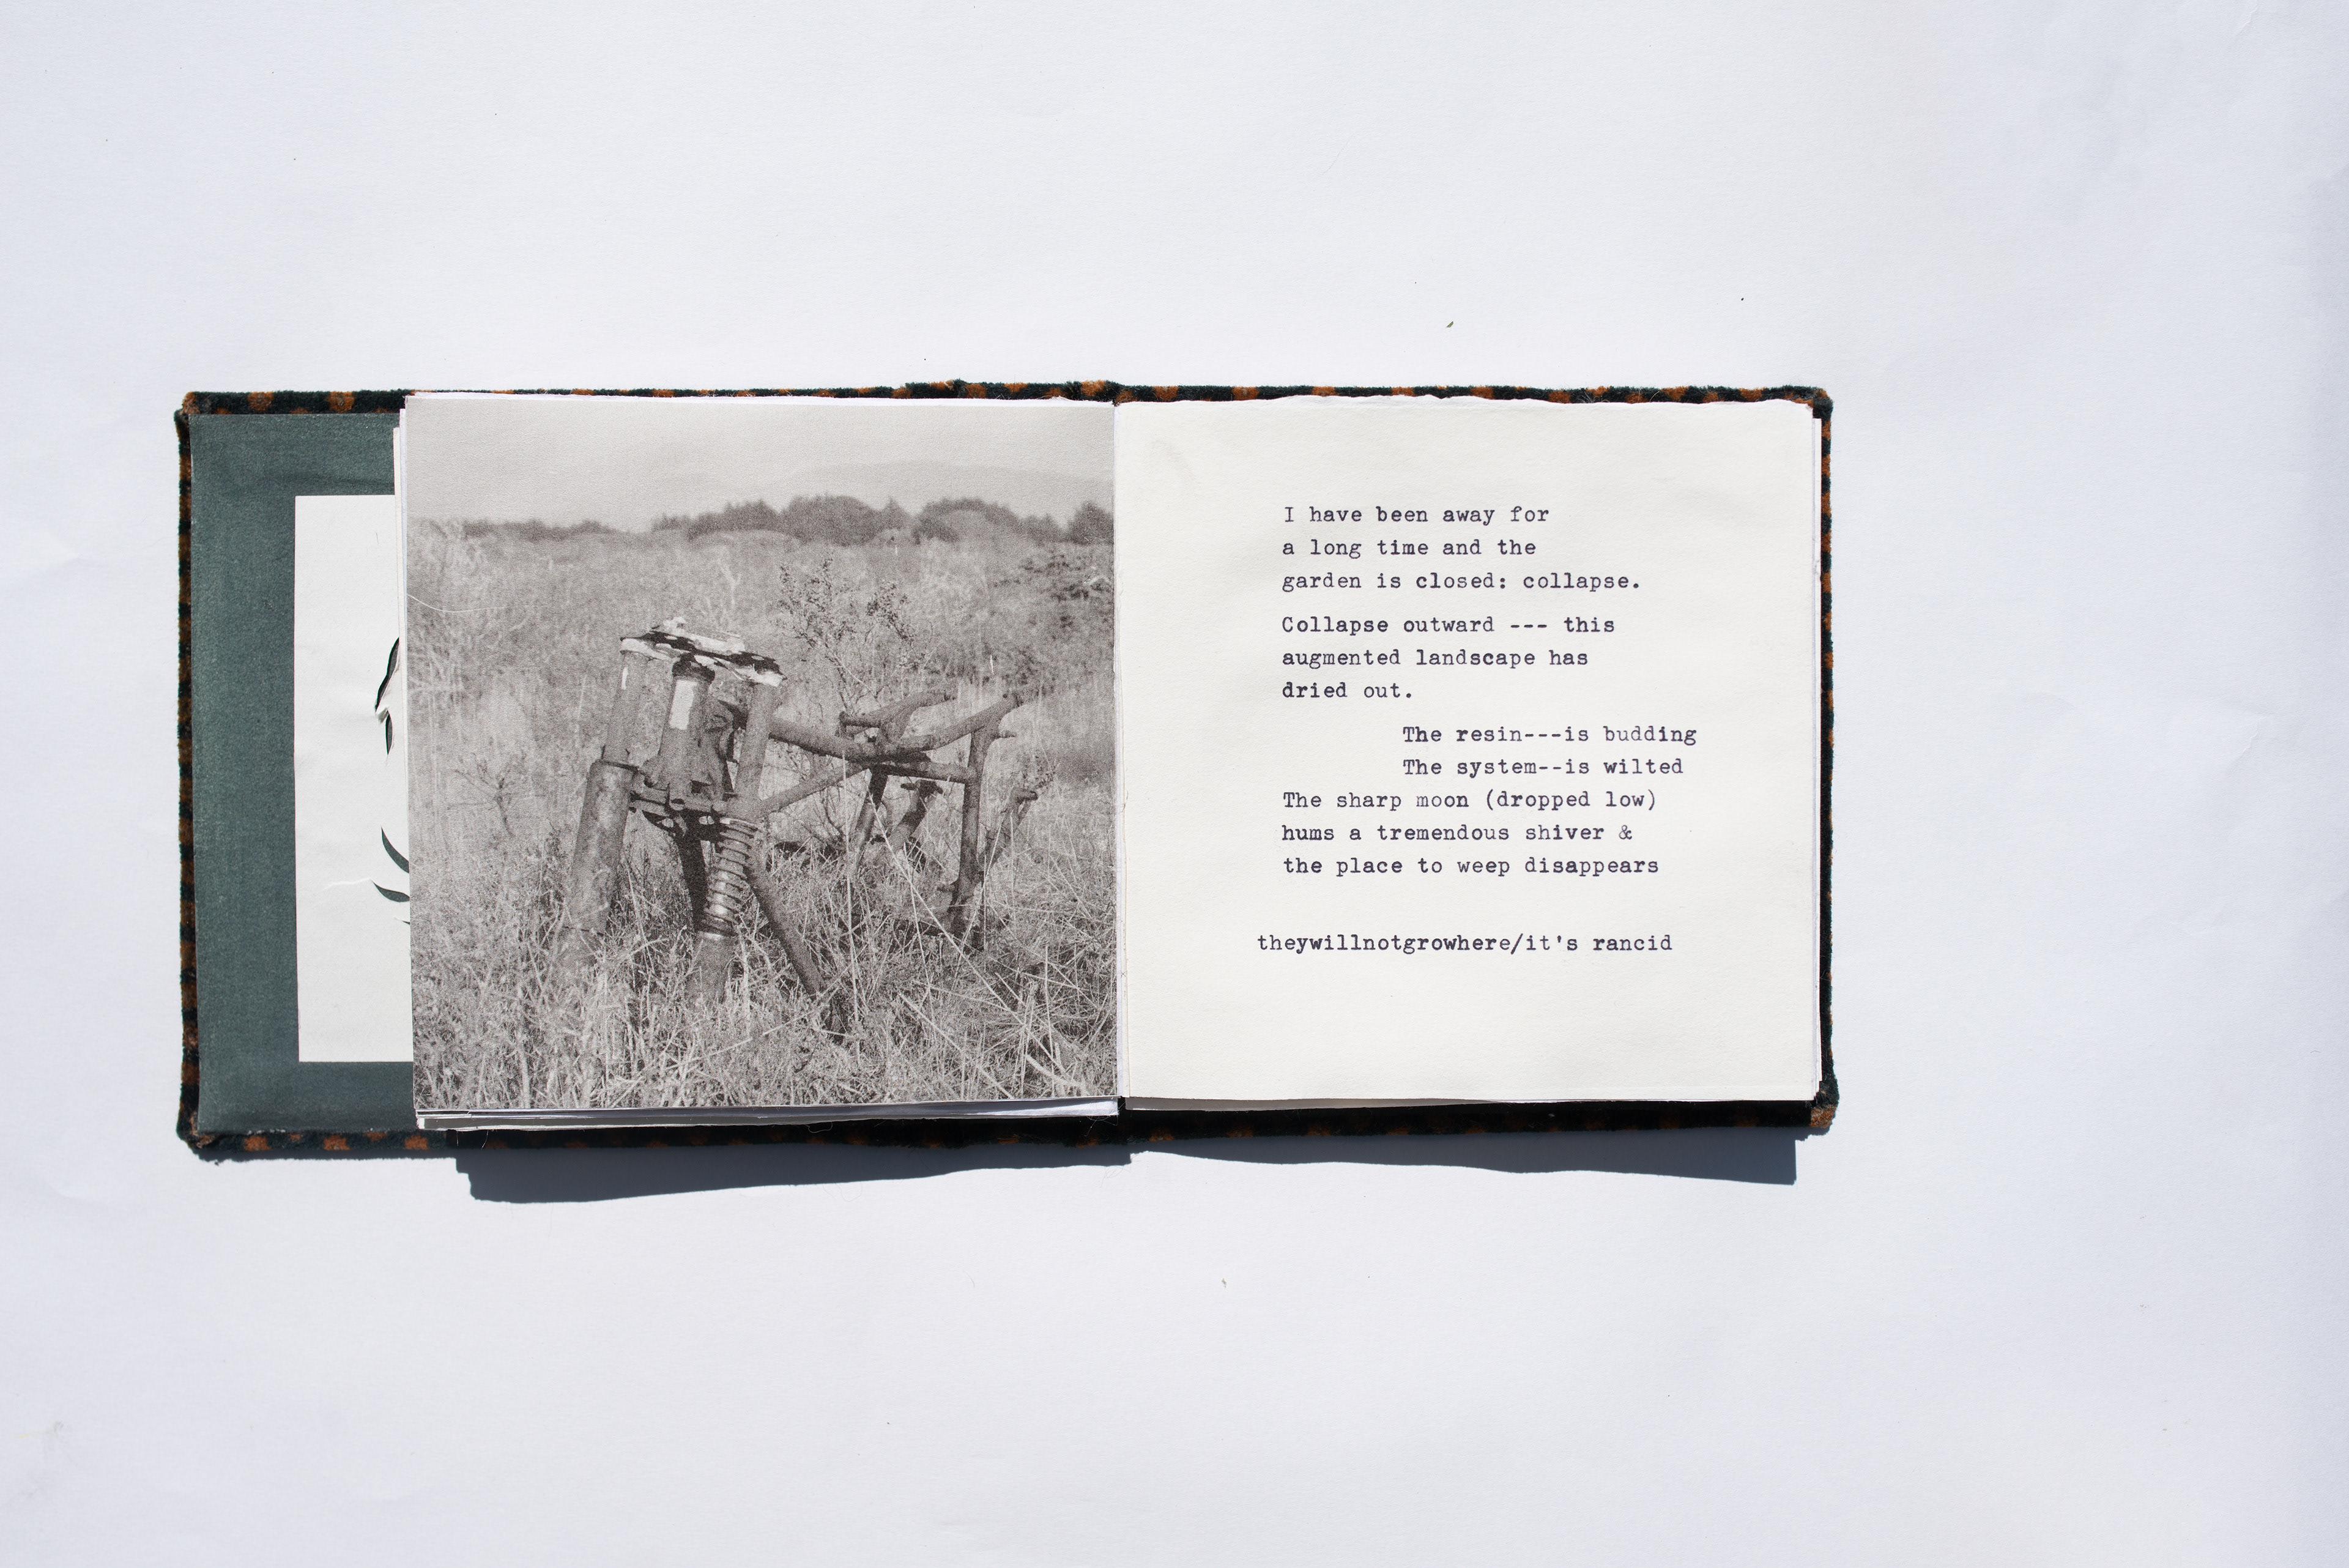 I have been away for
a long time and the
garden is closed: collapse.
Collapse outward --- this
augmented landscape has
dried out.
The resin---is budding
The system--is wilted
The sharp moon (dropped low)
hums a tremendous shiver &
the place to weep disappears
theywillnotgrowhere/it's rancid